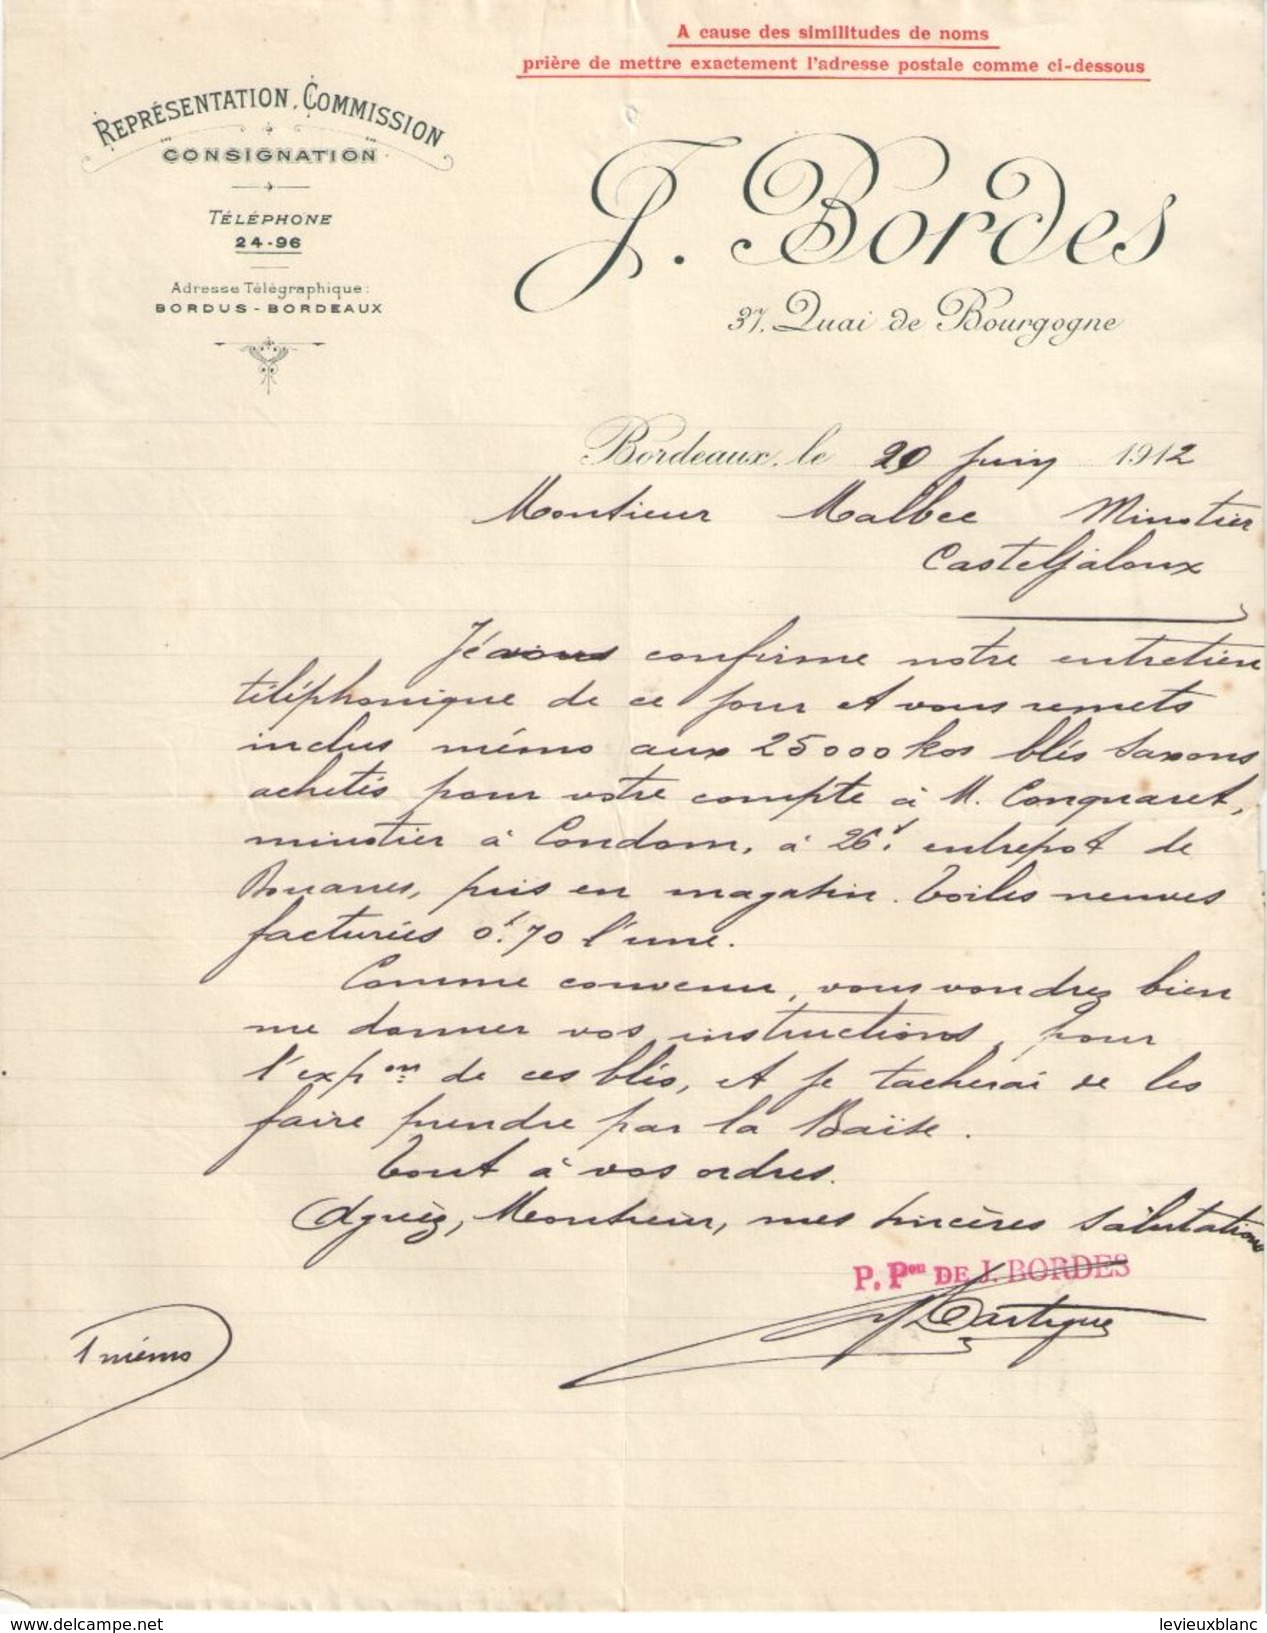 A cause des similitudes de noms
prière de mettre exactement l'adresse postale comme ci-dessous
REPRÉSENTATION, COMMISSION
CONSIGNATION
TÉLÉPHONE
24-96
Adresse Télégraphique:
BORDUS - BORDEAUX
J. Bordes
37, Quai de Bourgogne
Bordeaux, le 20 Juin 1912
Monsieur Malbec Minotier
Casteljaloux
Je vous confirme notre entretien
téléphonique de ce jour et vous remets
inclus mémo aux 25000 kos blés Saxons
achetés pour votre compte à M. Conquaret,
minotier à Condom, à 26f. entrepot de
Douanes, pris en magasin. Toiles neuves
facturées 0f.70 l'une.
Comme convenu, vous voudrez bien
me donner vos instructions, pour
l'expon de ces blés, et je tacherai de les
faire prendre par la Baïse.
Tout à vos ordres.
Agréez, Monsieur, mes sincères salutations
P. Pon DE J. BORDES
Lartigue
1 mémo
delcampe.net
levieuxblanc